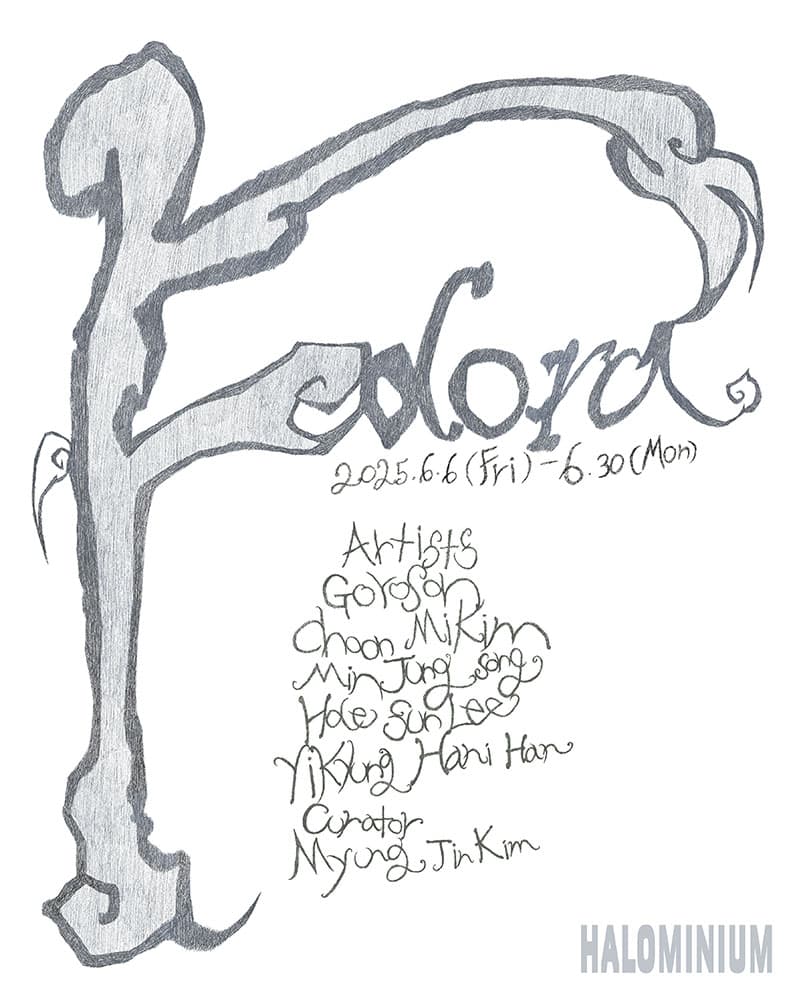 Fedora
2025.6.6 (Fri) - 6.30 (Mon)
Artists
Goyoson
Choon Mi Kim
Min Jung Song
Hae Sun Lee
Yi Kyung Hani Han
Curator
Myung Jin Kim
HALOMINIUM